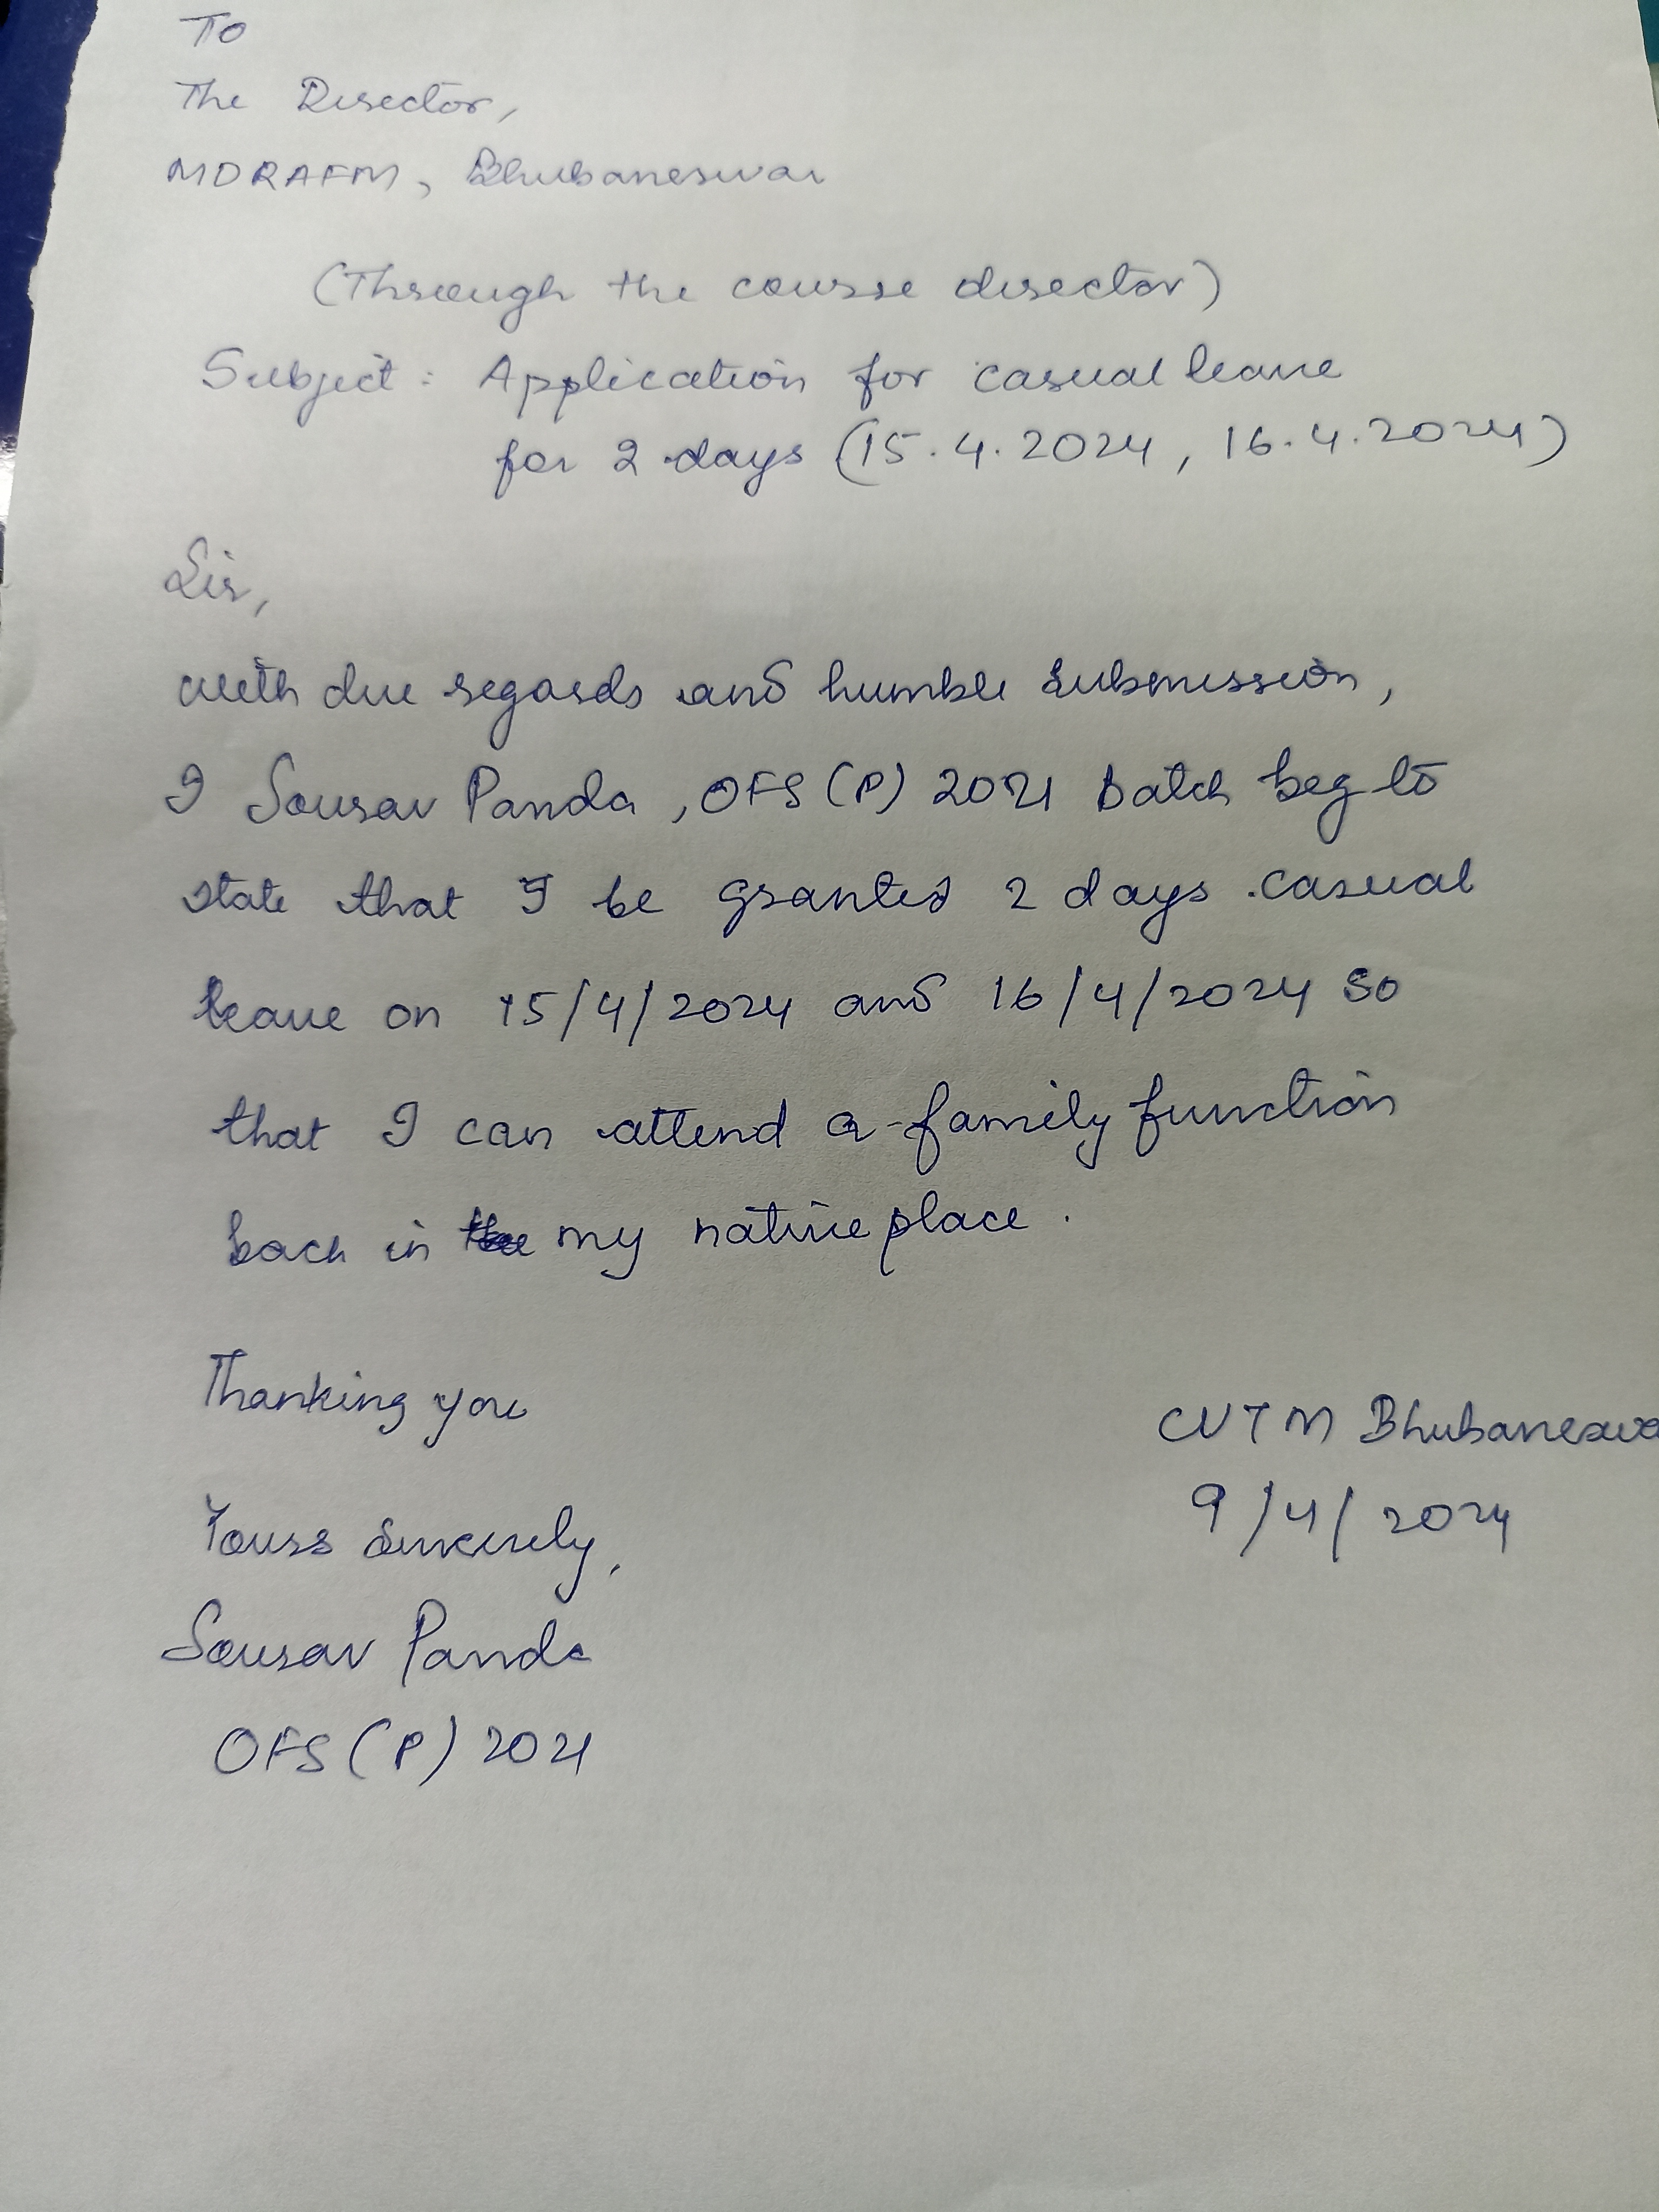 To
The Director,
MDRAFM, Bhubaneswar
(Through the course director)
Subject: Application for casual leave
for 2 days (15.4.2024, 16.4.2024)
Sir,
with due regards and humble submission,
I Sourav Panda, OFS (P) 2021 batch beg to
state that I be granted 2 days casual
leave on 15/4/2024 and 16/4/2024 so
that I can attend a family function
back in my native place.
Thanking you
CUTM Bhubaneswa
9/4/2024
Yours sincerely,
Sourav Panda
OFS (P) 2021